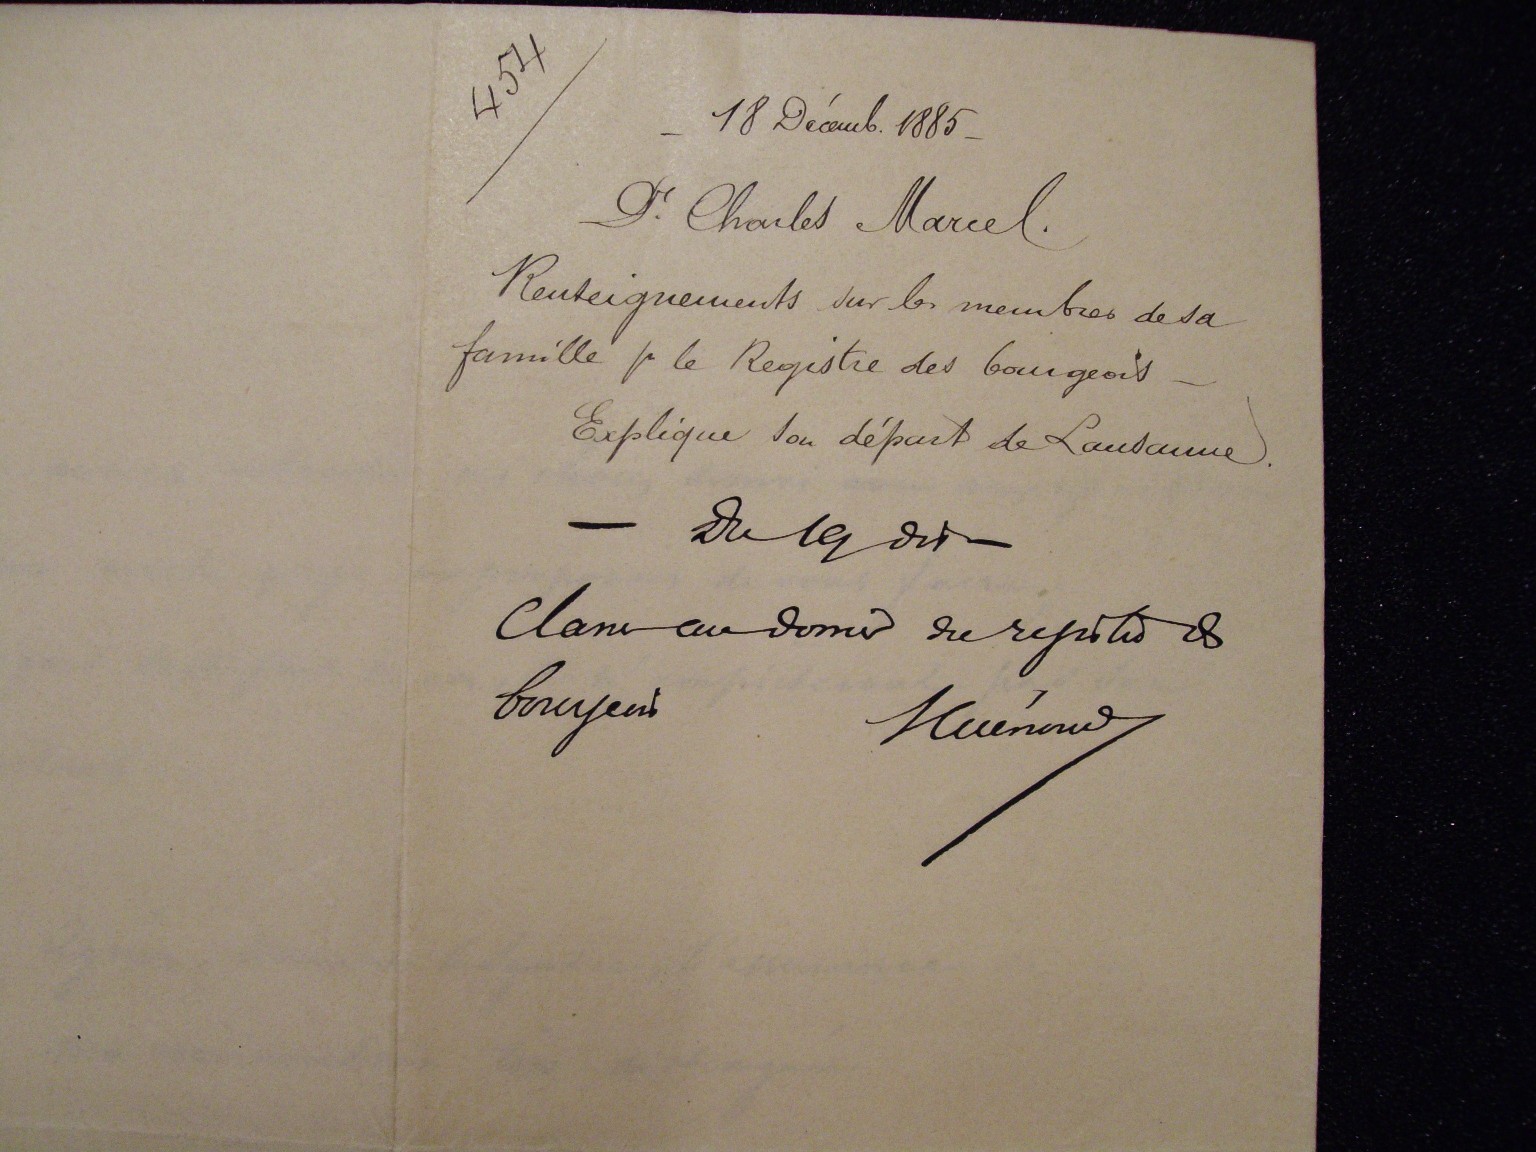 454
- 18 Décemb. 1885 -
Dr. Charles Marcel.
Renseignements sur les membres de sa
famille pr le Registre des bourgeois -
Explique son départ de Lausanne.
- Du 19 dit -
Classer au dossier du registre des
bourgeois Cuénoud